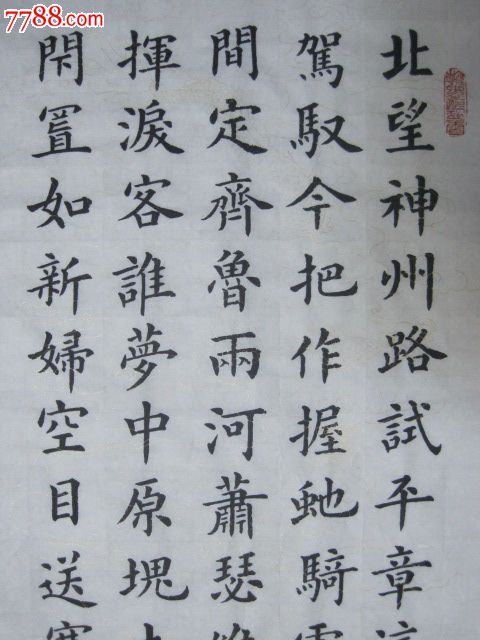 7788.com
北望神州路試平章
駕馭今把作握虵騎
間定齊魯兩河蕭瑟
揮淚客誰夢中原塊
閇置如新婦空目送